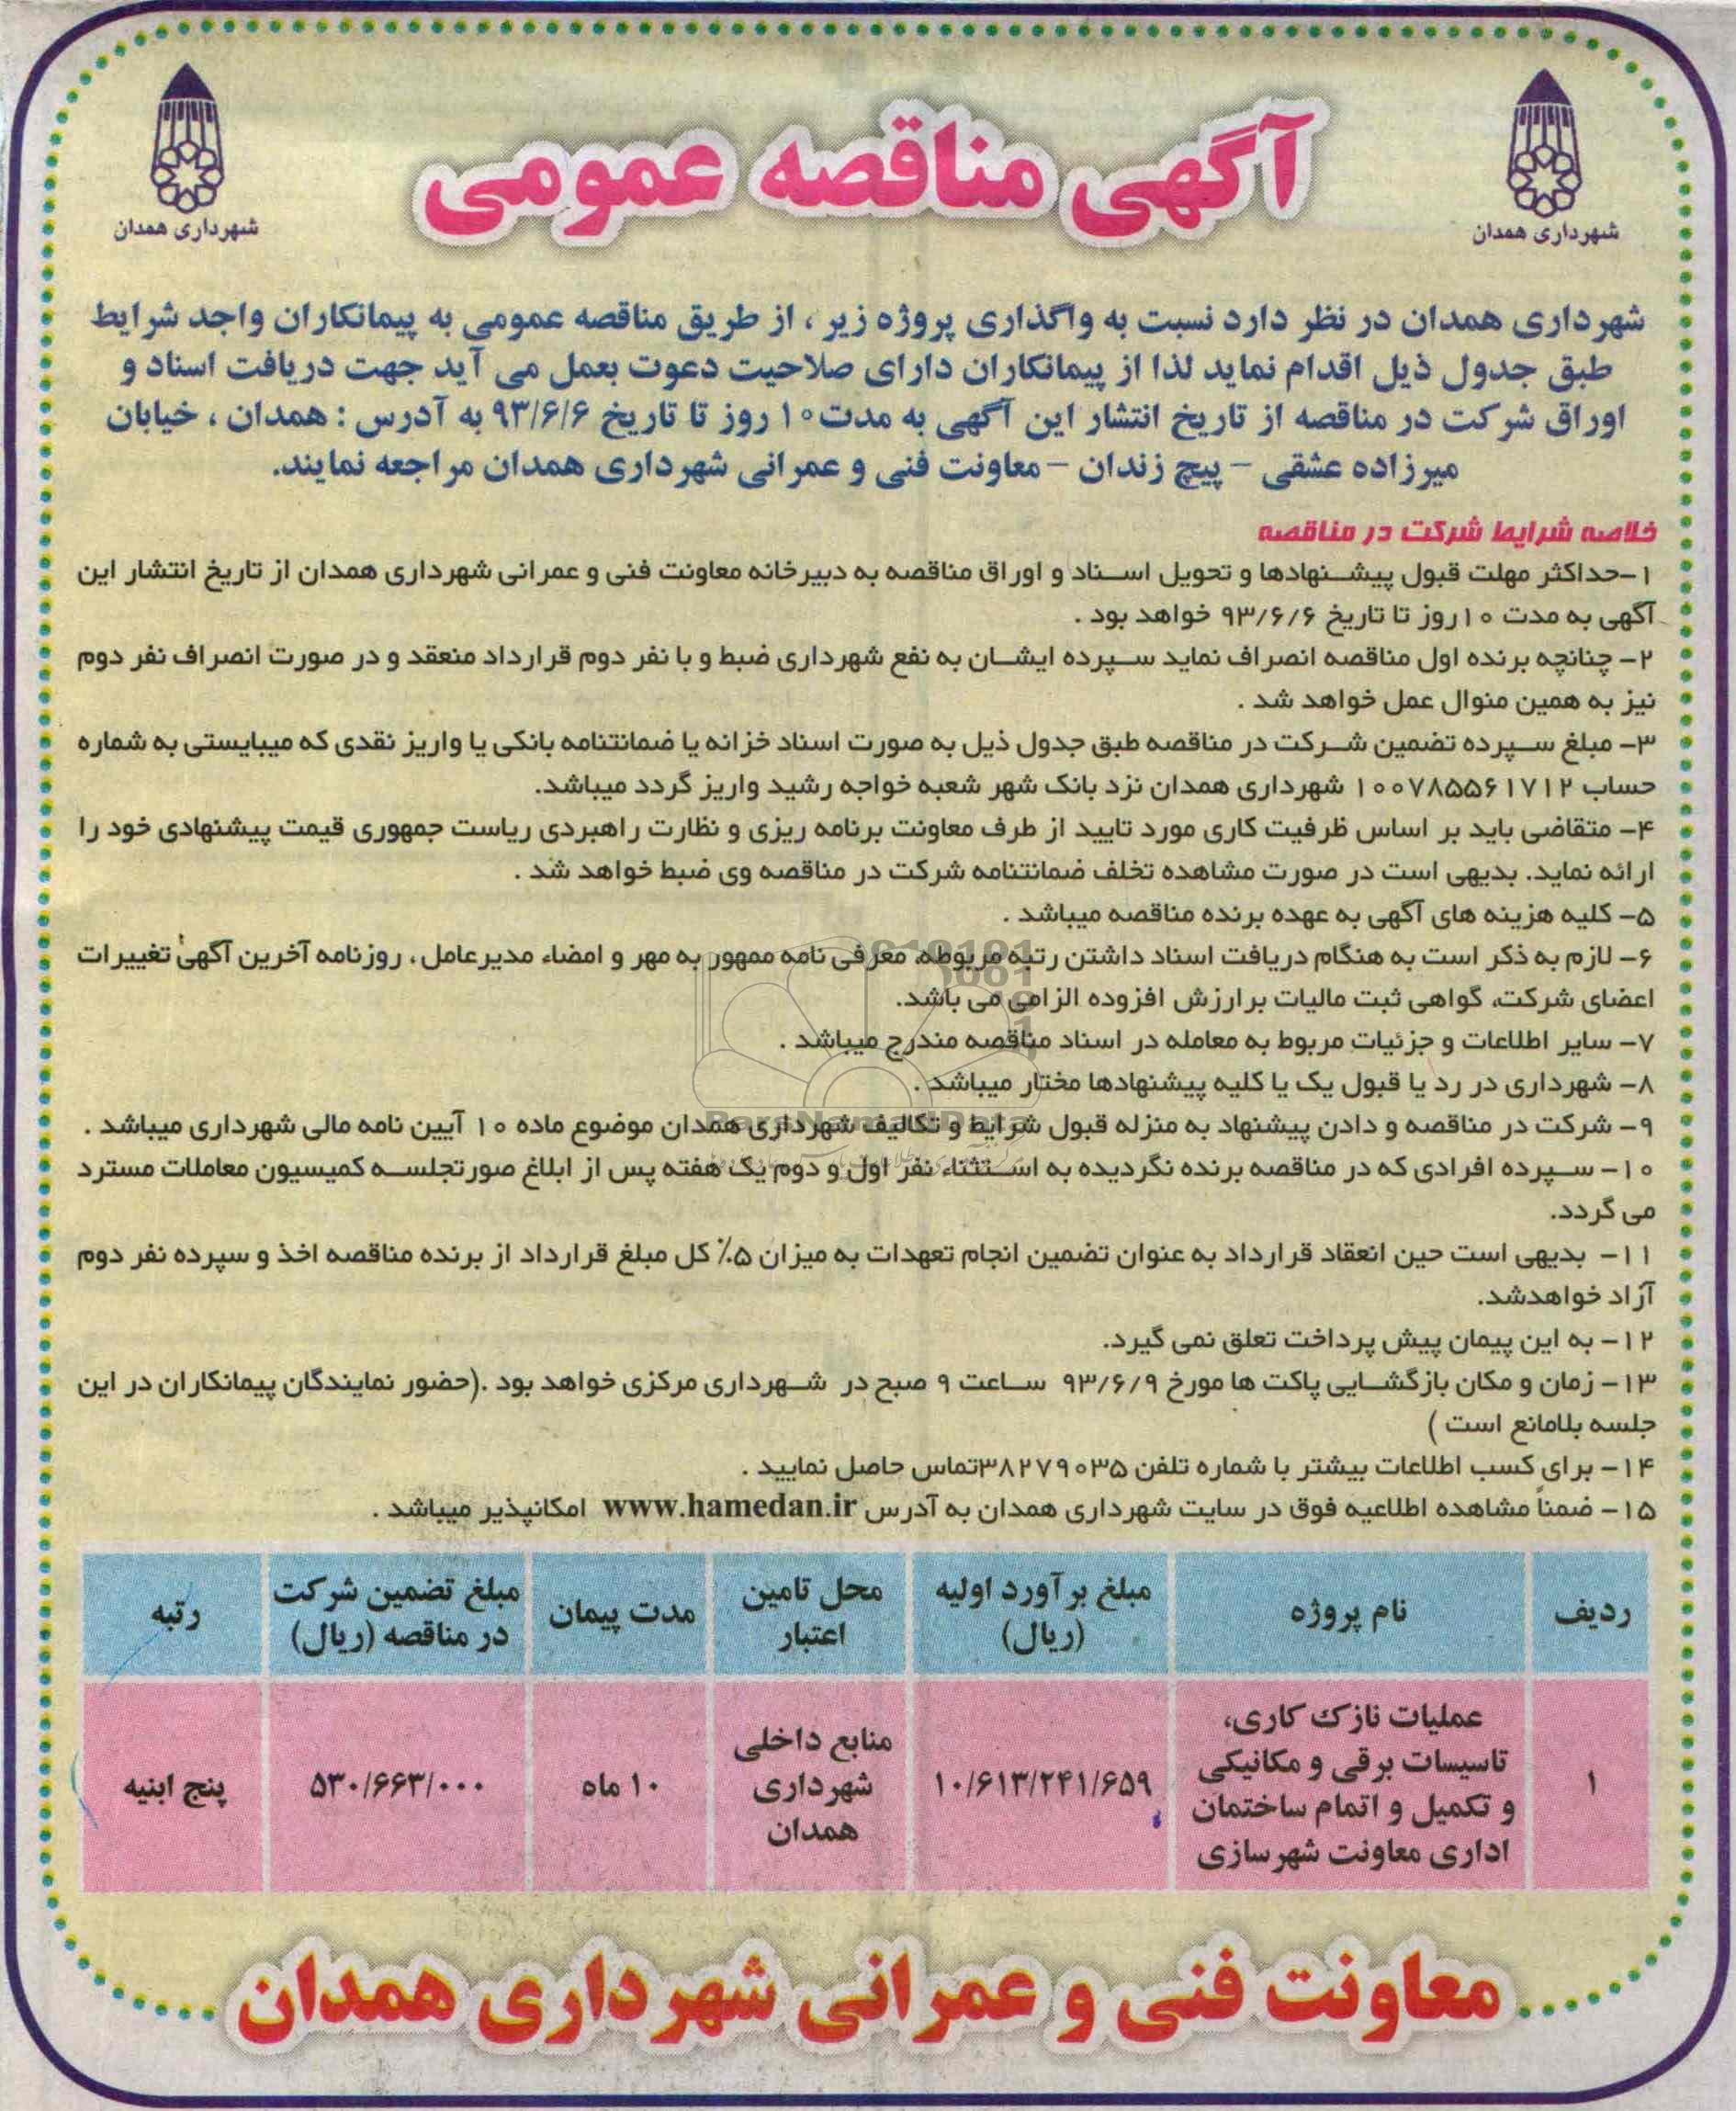 آگهی مناقصه عمومی
شهرداری همدان
شهرداری همدان
شهرداری همدان در نظر دارد نسبت به واگذاری پروژه زیر ، از طریق مناقصه عمومی به پیمانکاران واجد شرایط
طبق جدول ذیل اقدام نماید لذا از پیمانکاران دارای صلاحیت دعوت بعمل می آید جهت دریافت اسناد و
اوراق شرکت در مناقصه از تاریخ انتشار این آگهی به مدت۱۰ روز تا تاریخ ۹۳/۶/۶ به آدرس : همدان ، خیابان
میرزاده عشقی - پیچ زندان - معاونت فنی و عمرانی شهرداری همدان مراجعه نمایند.
خلاصه شرایط شرکت در مناقصه
۱-حداکثر مهلت قبول پیشنهادها و تحویل اسناد و اوراق مناقصه به دبیرخانه معاونت فنی و عمرانی شهرداری همدان از تاریخ انتشار این
آگهی به مدت ۱۰روز تا تاریخ ۹۳/۶/۶ خواهد بود .
۲- چنانچه برنده اول مناقصه انصراف نماید سپرده ایشان به نفع شهرداری ضبط و با نفر دوم قرارداد منعقد و در صورت انصراف نفر دوم
نیز به همین منوال عمل خواهد شد .
۳- مبلغ سپرده تضمین شرکت در مناقصه طبق جدول ذیل به صورت اسناد خزانه یا ضمانتنامه بانکی یا واریز نقدی که میبایستی به شماره
حساب ۱۰۰۷۸۵۵۶۱۷۱۲ شهرداری همدان نزد بانک شهر شعبه خواجه رشید واریز گردد میباشد.
۴- متقاضی باید بر اساس ظرفیت کاری مورد تایید از طرف معاونت برنامه ریزی و نظارت راهبردی ریاست جمهوری قیمت پیشنهادی خود را
ارائه نماید. بدیهی است در صورت مشاهده تخلف ضمانتنامه شرکت در مناقصه وی ضبط خواهد شد .
۵- کلیه هزینه های آگهی به عهده برنده مناقصه میباشد .
۶- لازم به ذکر است به هنگام دریافت اسناد داشتن رتبه مربوطه، معرفی نامه ممهور به مهر و امضاء مدیرعامل ، روزنامه آخرین آگهی تغییرات
اعضای شرکت، گواهی ثبت مالیات برارزش افزوده الزامی می باشد.
۷- سایر اطلاعات و جزئیات مربوط به معامله در اسناد مناقصه مندرج میباشد .
۸- شهرداری در رد یا قبول یک یا کلیه پیشنهادها مختار میباشد .
۹- شرکت در مناقصه و دادن پیشنهاد به منزله قبول شرایط و تکالیف شهرداری همدان موضوع ماده ۱۰ آیین نامه مالی شهرداری میباشد .
۱۰- سپرده افرادی که در مناقصه برنده نگردیده به استثناء نفر اول و دوم یک هفته پس از ابلاغ صورتجلسه کمیسیون معاملات مسترد
می گردد.
۱۱- بدیهی است حین انعقاد قرارداد به عنوان تضمین انجام تعهدات به میزان ۵٪ کل مبلغ قرارداد از برنده مناقصه اخذ و سپرده نفر دوم
آزاد خواهدشد.
۱۲- به این پیمان پیش پرداخت تعلق نمی گیرد.
۱۳- زمان و مکان بازگشایی پاکت ها مورخ ۹۳/۶/۹ ساعت ۹ صبح در شهرداری مرکزی خواهد بود .(حضور نمایندگان پیمانکاران در این
جلسه بلامانع است )
۱۴- برای کسب اطلاعات بیشتر با شماره تلفن ۳۸۲۷۹۰۳۵تماس حاصل نمایید .
۱۵- ضمناً مشاهده اطلاعیه فوق در سایت شهرداری همدان به آدرس www.hamedan.ir امکانپذیر میباشد .
ردیف نام پروژه مبلغ برآورد اولیه (ریال) محل تامین اعتبار مدت پیمان مبلغ تضمین شرکت در مناقصه (ریال) رتبه
۱ عملیات نازک کاری، تاسیسات برقی و مکانیکی و تکمیل و اتمام ساختمان اداری معاونت شهرسازی ۱۰/۶۱۳/۲۴۱/۶۵۹ منابع داخلی شهرداری همدان ۱۰ ماه ۵۳۰/۶۶۳/۰۰۰ پنج ابنیه
معاونت فنی و عمرانی شهرداری همدان
ParsNamadData